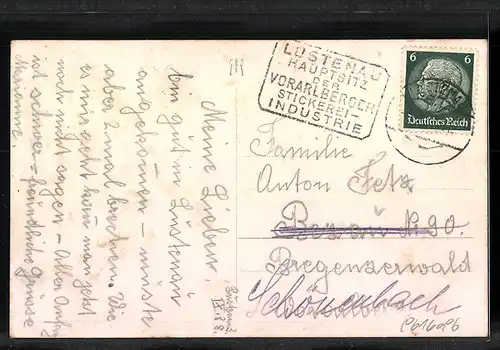 LUSTENAU
HAUPTSITZ
DER
VORARLBERGER
STICKEREI-
INDUSTRIE
6 6
Deutsches Reich
Meine Lieben,
bin gut in Lustenau
angekommen - müsste
aber 2 mal brechen. Wie
es mir geht kann man jetzt
noch nicht sagen - Aller Anfang
ist schwer - freundliche Grüsse
Familie
Anton Fetz
Bezau N. 90.
Bregenzerwald
Schönenbach